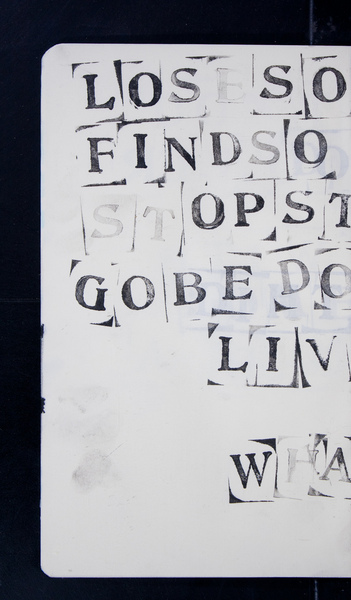 LOSE SO
FIND SO
STOP ST
GO BE DO
LIV
WHA